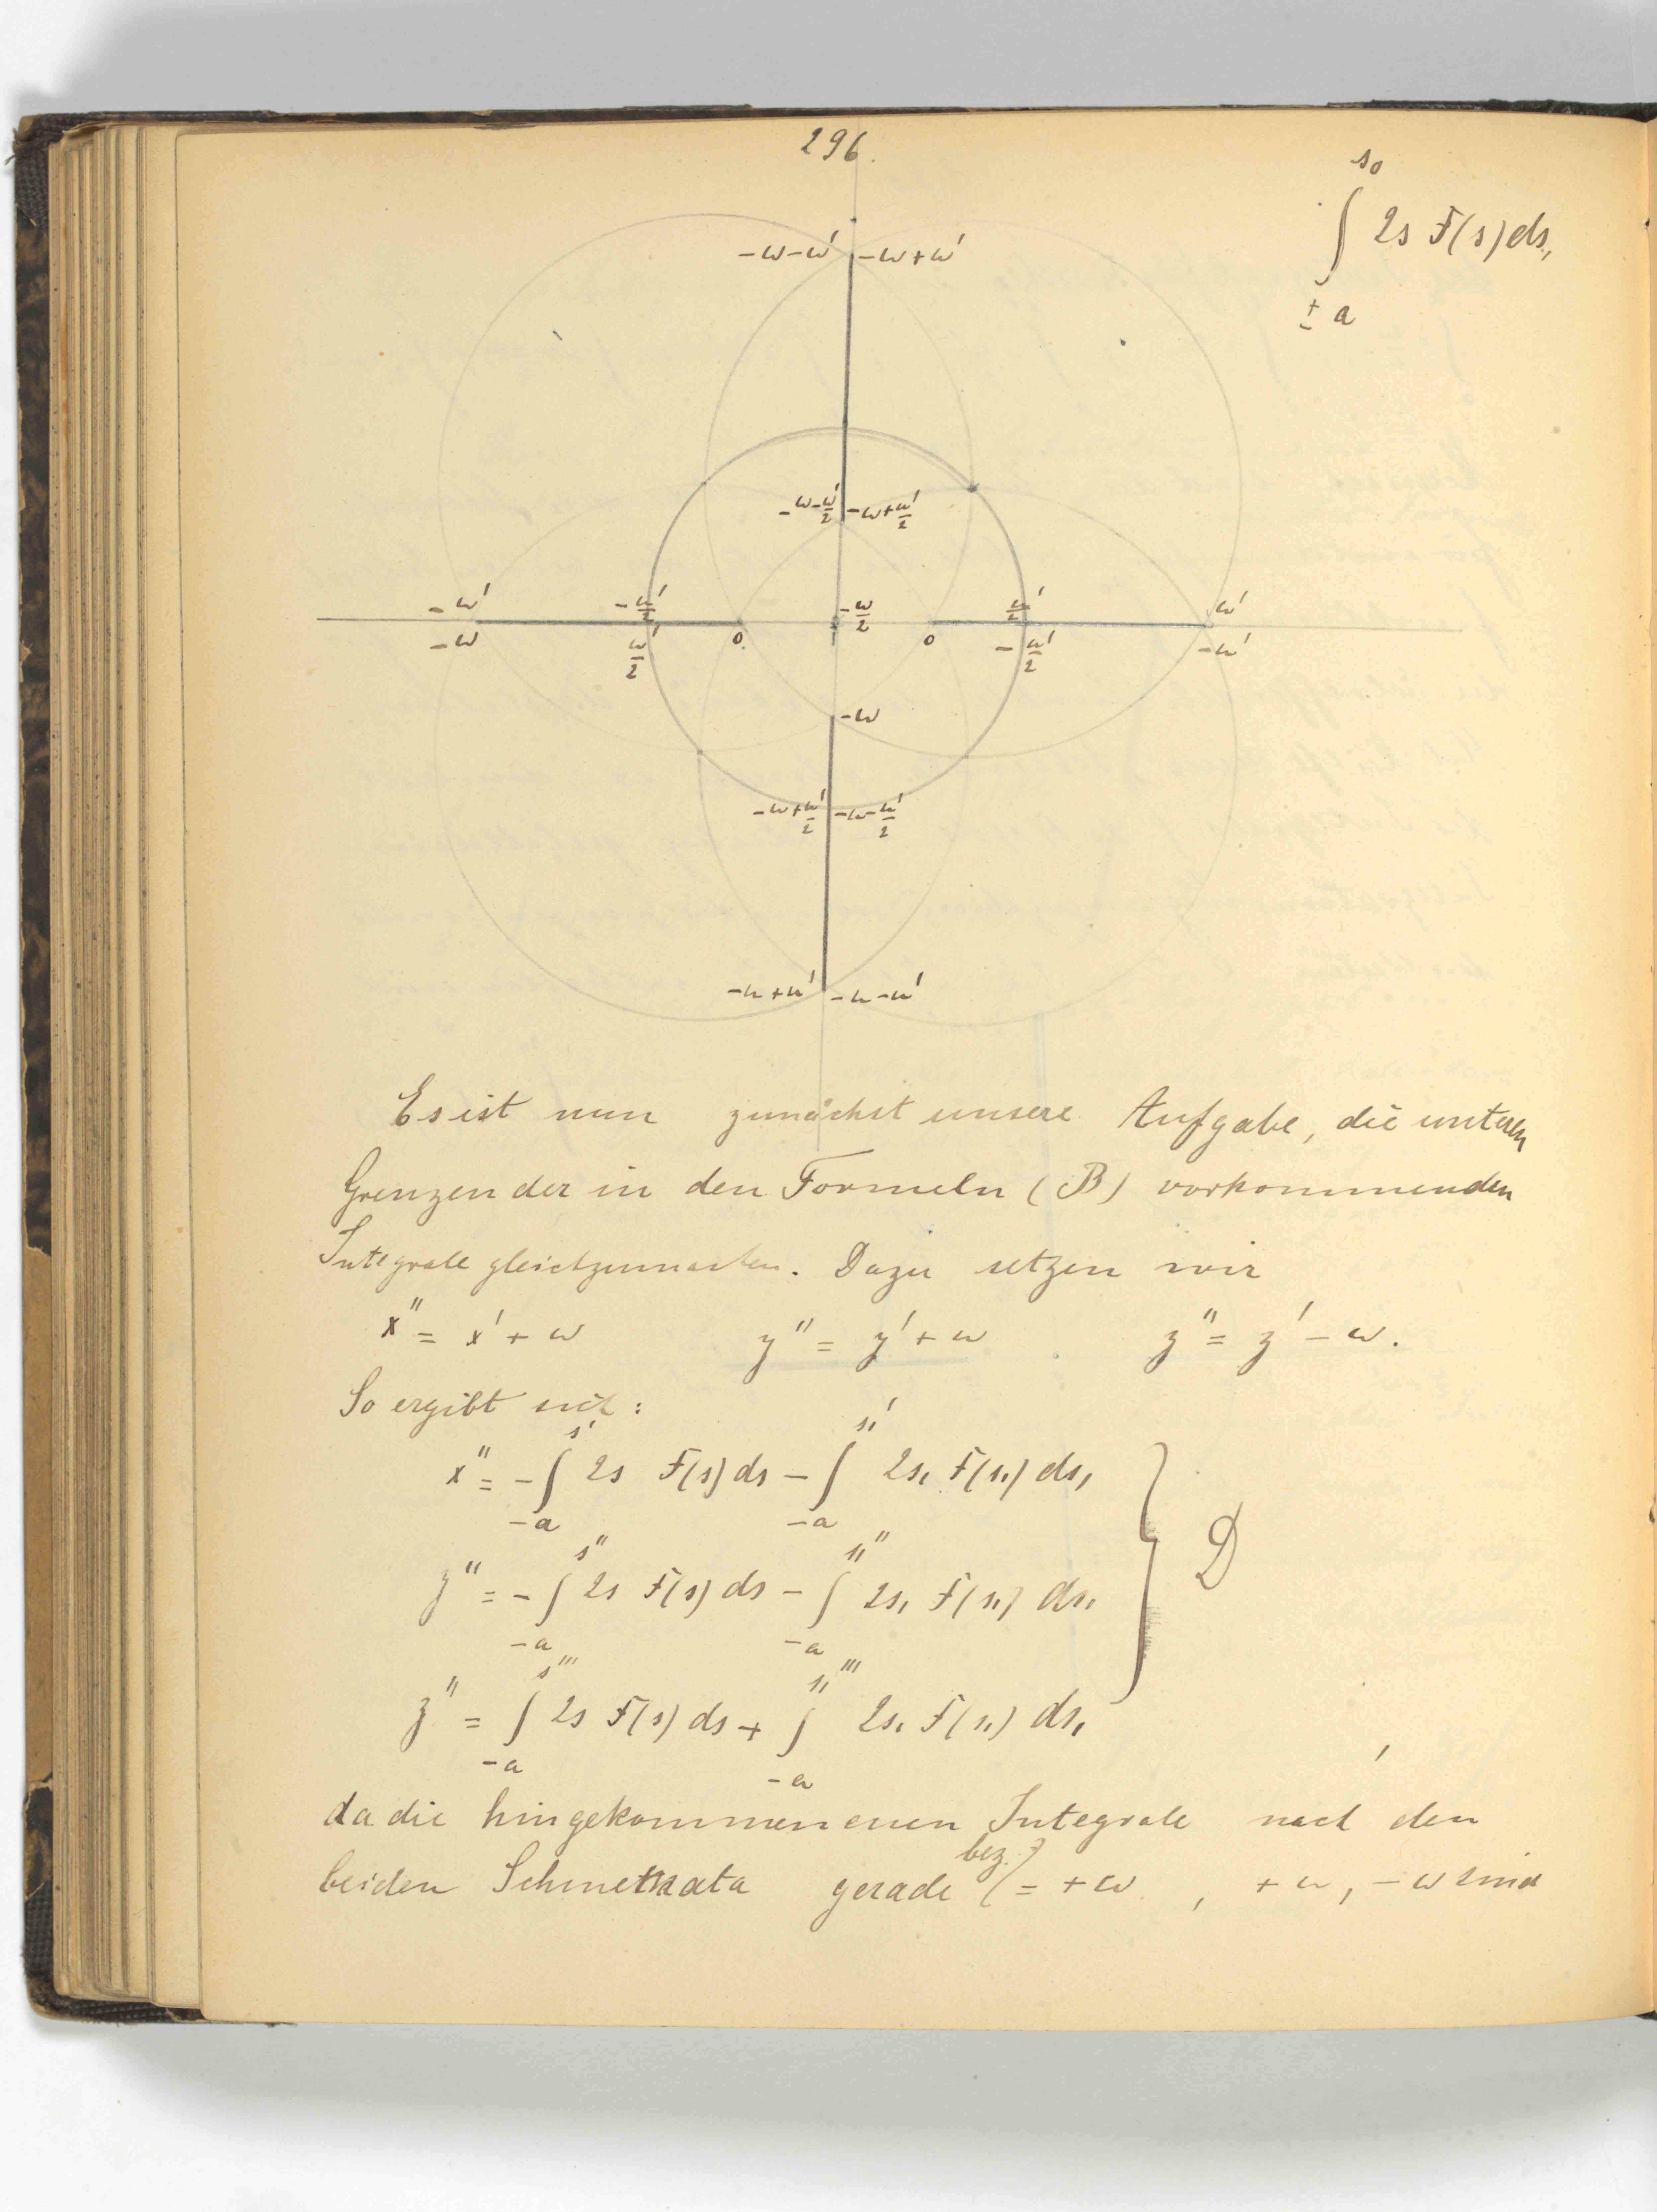 296.
s₀
∫ 2s F(s) ds,
± a
-ω-ω' -ω+ω'
-ω-ω'/2 -ω+ω'/2
-ω' -ω'/2 -ω/2 ω'/2 ω'
-ω ω'/2 0 0 -ω'/2 -ω'
-ω
-ω+ω'/2 -ω-ω'/2
-ω+ω' -ω-ω'
Es ist nun zunächst unsere Aufgabe, die unteren
Grenzen der in den Formeln (B) vorkommenden
Integrale gleichzumachen. Dazu setzen wir
x'' = x' + ω y'' = y' + ω z'' = z' - ω.
So ergibt sich:
x'' = -∫_{-a}^{s'} 2s F(s) ds - ∫_{-a}^{s₁'} 2s₁ F(s₁) ds₁
y'' = -∫_{-a}^{s''} 2s F(s) ds - ∫_{-a}^{s₁''} 2s₁ F(s₁) ds₁ } D
z'' = ∫_{-a}^{s'''} 2s F(s) ds + ∫_{-a}^{s₁'''} 2s₁ F(s₁) ds₁
da die hingekommenenen Integrale nach den
bez.
beiden gerade (= +ω, +ω, -ω sind